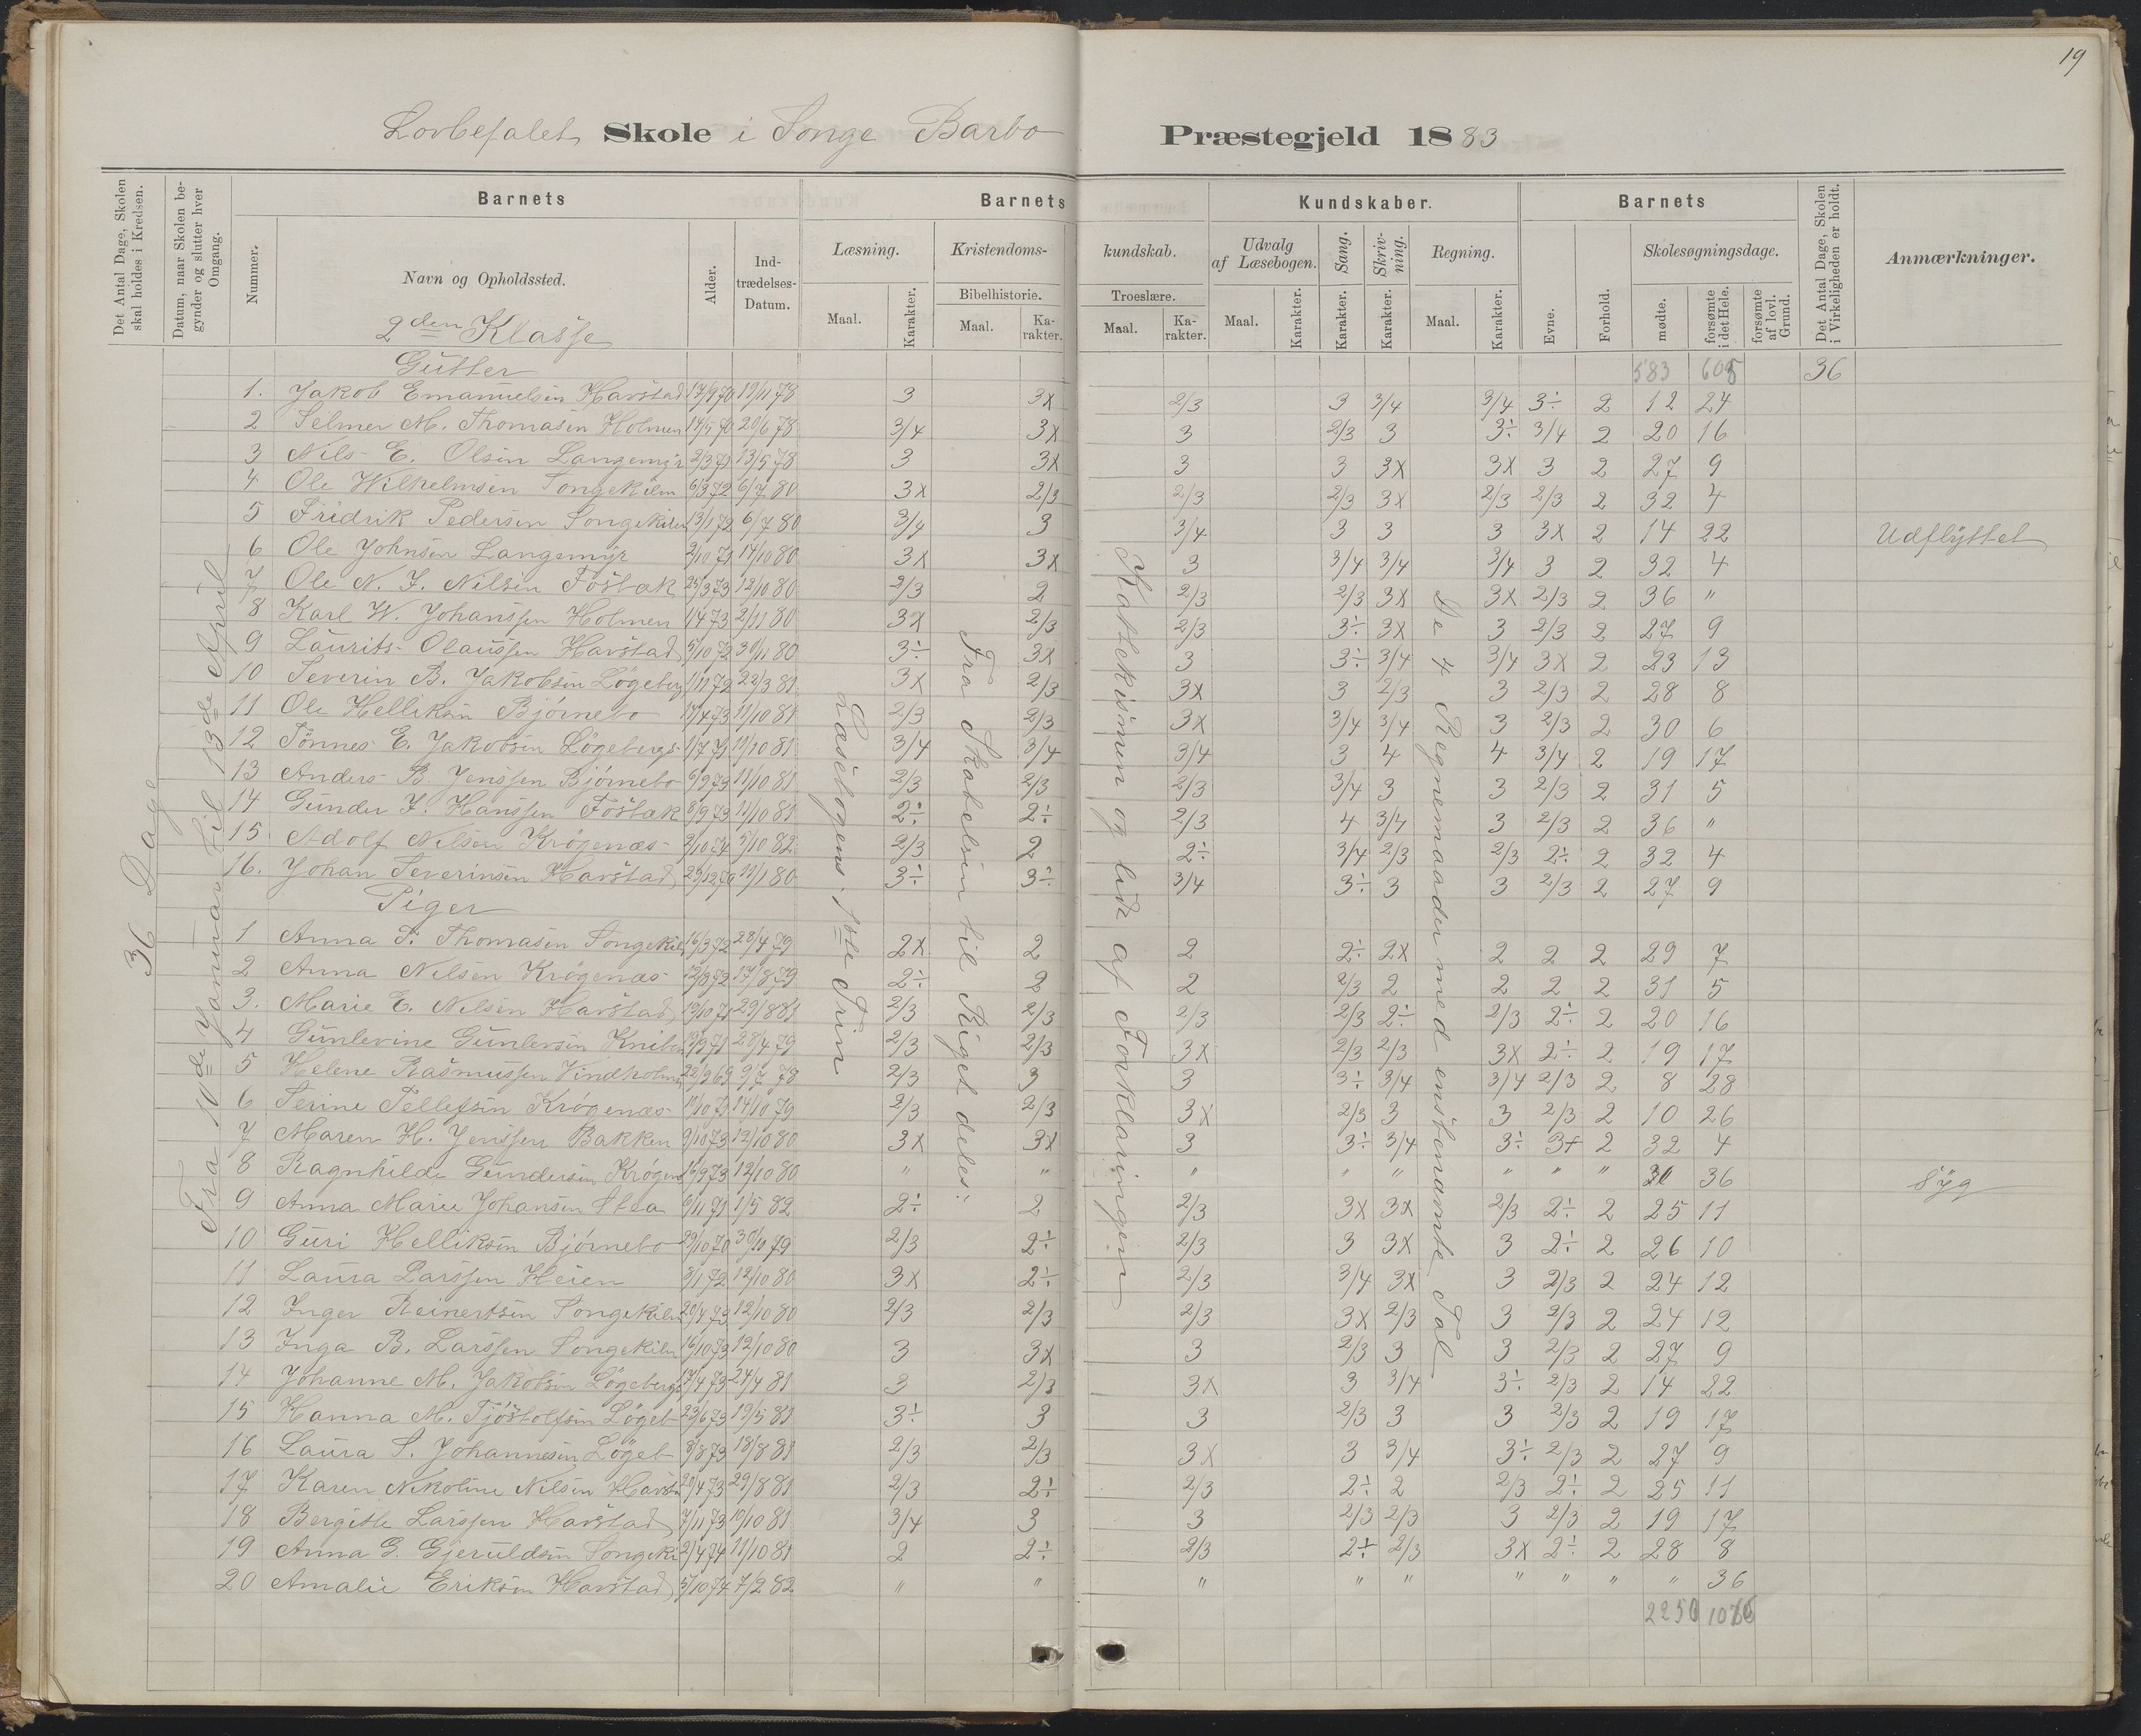 19
Lovbefalet Skole i Songe Barbo Præstegjeld 1883
Det Antal Dage, Skolen skal holdes i Kredsen.
Datum, naar Skolen begynder og slutter hver Omgang.
Barnets
Nummer.
Navn og Opholdssted.
Alder.
Indtrædelses-Datum.
Barnets Kundskaber.
Læsning.
Maal.
Karakter.
Kristendomskundskab.
Bibelhistorie.
Maal.
Karakter.
Troeslære.
Maal.
Karakter.
Udvalg af Læsebogen.
Maal.
Karakter.
Sang.
Karakter.
Skrivning.
Karakter.
Regning.
Maal.
Karakter.
Barnets
Evne.
Forhold.
Skolesøgningsdage.
mødte.
forsømte i det Hele.
forsømte af lovl. Grund.
Det Antal Dage, Skolen i Virkeligheden er holdt.
Anmærkninger.
36 Dage
Fra 10de Januar til 13de April
Læsebogens 1ste Trin
Fra Skabelsen til Riget deles.
Kattekismen og lidt af Forklaringen
De 4 Regnemaader med ensbenævnte Tal
2den Klasse
Gutter 583 605 36
1. Jakob Emanuelsen Havstad 17/9 70 19/11 78 3 3x 2/3 3 3/4 3/4 3÷ 2 12 24
2 Selmer M. Thomasen Holmen 14/5 70 20/6 78 3/4 3x 3 2/3 3 3÷ 3/4 2 20 16
3 Nils E. Olsen Langemyr 2/3 71 13/5 78 3 3x 3 3 3x 3x 3 2 27 9
4 Ole Wilhelmsen Songekilen 6/3 72 6/7 80 3x 2/3 2/3 2/3 3x 2/3 2/3 2 32 4
5 Fridrik Pedersen Songekilen 13/1 72 6/7 80 3/4 3 3/4 3 3 3 3x 2 14 22 Udflyttet
6 Ole Johnsen Langemyr 2/10 71 14/10 80 3x 3x 3 3/4 3/4 3/4 3 2 32 4
7 Ole N. F. Nilsen Fostak 25/3 73 12/10 80 2/3 2 2/3 2/3 3x 3x 2/3 2 36 "
8 Karl W. Johanssen Holmen 1/4 73 2/11 80 3x 2/3 2/3 3÷ 3x 3 2/3 2 27 9
9 Laurits Olaussen Havstad 5/10 72 30/11 80 3÷ 3x 3 3÷ 3/4 3/4 3x 2 23 13
10 Severin B. Jakobsen Løgeberg 1/11 72 22/3 81 3x 2/3 3x 3 2/3 3 2/3 2 28 8
11 Ole Helliksen Bjørnebo 17/4 73 11/10 81 2/3 2/3 3x 3/4 3/4 3 2/3 2 30 6
12 Tønnes E. Jakobsen Løgeberg 1/7 71 11/10 81 3/4 3/4 3/4 3 4 4 3/4 2 19 17
13 Anders B. Jenssen Bjørnebo 6/9 73 11/10 81 2/3 2/3 2/3 3/4 3 3 2/3 2 31 5
14 Gunder F. Hanssen Fostak 8/9 73 11/10 81 2÷ 2÷ 2/3 4 3/4 3 2/3 2 36 "
15 Adolf Nilsen Krøgenæs 2/10 74 5/10 82 2/3 2 2÷ 3/4 2/3 2/3 2÷ 2 32 4
16. Johan Severinsen Havstad 29/12 70 12/1 80 3÷ 3÷ 3/4 3÷ 3 3 2/3 2 27 9
Piger
1 Anna S. Thomasen Songekil 16/3 72 28/4 79 2x 2 2 2÷ 2x 2 2 2 29 7
2 Anna Nilsen Krøgenæs 12/3 72 17/8 79 2÷ 2 2 2/3 2 2 2 2 31 5
3. Marie E. Nilsen Havstad 19/10 71 29/8 81 2/3 2/3 2/3 2/3 2÷ 2/3 2÷ 2 20 16
4 Gunlevine Gunlevsen 28/4 79 2/3 2/3 3x 2/3 2/3 3x 2÷ 2 19 17
5 Helene Rasmussen Vindholmen 22/9 69 9/7 78 2/3 3 3 3÷ 3/4 3/4 2/3 2 8 28
6 Serine Tellefsen Krøgenæs 11/10 73 14/10 79 2/3 2/3 3x 2/3 3 3 2/3 2 10 26
7 Maren H. Jenssen Bakken 9/10 73 12/10 80 3x 3x 3 3÷ 3/4 3÷ 3+ 2 32 4
8 Ragnhilde Gundersen Krøgenæs 16/9 73 12/10 80 " " " " " " " " 36 Syg
9 Anna Marie Johansen Stea 6/11 71 1/5 82 2÷ 2 2/3 3x 3x 2/3 2÷ 2 25 11
10 Guri Helliksen Bjørnebo 29/10 70 30/10 79 2/3 2÷ 2/3 3 3x 3 2÷ 2 26 10
11 Laura Larssen Heien 8/1 72 12/10 80 3x 2÷ 2/3 3/4 3x 3 2/3 2 24 12
12 Inger Reinertsen Songekilen 20/4 73 12/10 80 2/3 2/3 2/3 3x 2/3 3 2/3 2 24 12
13 Inga B. Larssen Songekilen 16/10 73 12/10 80 3 3x 3 2/3 3 3 2/3 2 27 9
14 Johanne M. Jakobsen Løgeberg 17/4 73 24/4 81 3 2/3 3x 3 3/4 3÷ 2/3 2 14 22
15 Hanna M. Tjøstolfsen Løgeb 23/6 73 19/5 81 3÷ 3 3 2/3 3 3 2/3 2 19 17
16 Laura S. Johannesen Løgeb 8/8 73 18/8 81 2/3 2/3 3x 3 3/4 3÷ 2/3 2 27 9
17 Karen Nikoline Nilsen Havst 20/4 73 29/8 81 2/3 2÷ 2/3 2÷ 2 2/3 2÷ 2 25 11
18 Bergitte Larssen Havstad 7/11 73 10/10 81 3/4 3 3 2/3 2/3 3 2/3 2 19 17
19 Anna G. Gjeruldsen Songeki 2/4 74 11/10 81 2 2÷ 2/3 2÷ 2/3 3x 2÷ 2 28 8
20 Amalie Eriksen Havstad 5/10 74 7/2 82 " " " " " " " " " 36
2250